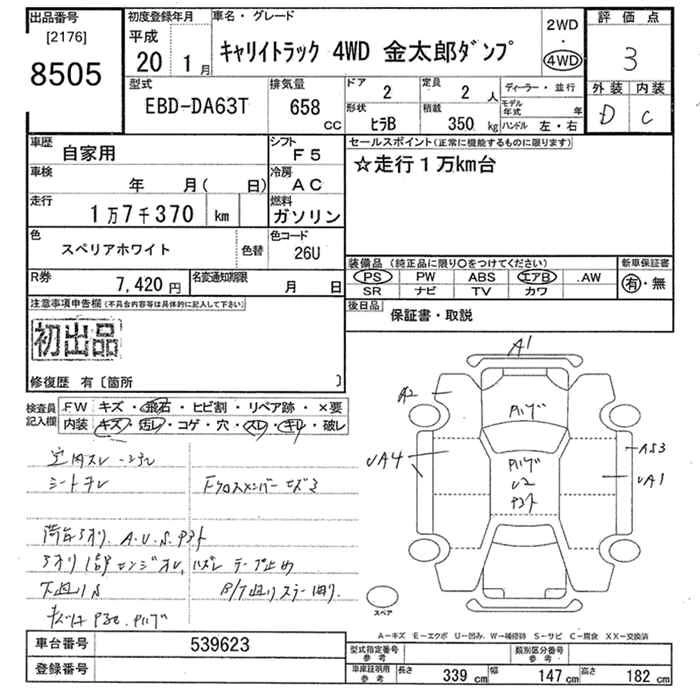 出品番号 初度登録年月 車名・グレード 2WD 評価点
[2176] 平成 ・
8505 20 1月 キャリイトラック 4WD 金太郎ダンプ 4WD 3
型式 排気量 ドア 定員 ディーラー・並行 外装 内装
EBD-DA63T 658 CC 2 2 人 モデル年式 年 D C
形状 積載 ハンドル 左・右
ヒラB 350 kg
車歴 自家用 シフト F5 セールスポイント(正常に機能するものに限ります)
車検 年 月( 日) 冷房 AC ☆走行1万km台
走行 1万7千370 km 燃料 ガソリン
色 スペリアホワイト 色替 色コード 26U
装備品(純正品に限り○をつけてください) 新車保証書
R券 7,420円 名変通知期限 月 日 PS PW ABS エアB .AW 有・無
SR ナビ TV カワ
注意事項申告欄(不具合内容等は具体的に記入して下さい) 後日品 保証書・取説
初出品
修復歴 有〔箇所 〕
検査員記入欄 FW キズ・飛石・ヒビ割・リペア跡・×要
内装 キズ・汚レ・コゲ・穴・スレ・キレ・破レ
A1
A2
UA4
AS3
UA1
U2
シートヨレ
A.U.S.
テープ止め
スペア
A−キズ E−エクボ U−凹み W−補修跡 S−サビ C−腐食 XX−交換済
車台番号 539623 型式指定番号 参考 類別区分番号 参考
登録番号 車庫証明用 参考 長さ 339 cm 幅 147 cm 高さ 182 cm